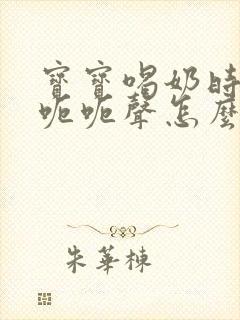 寶寶喝奶時
呃呃聲怎麼
朱華棟